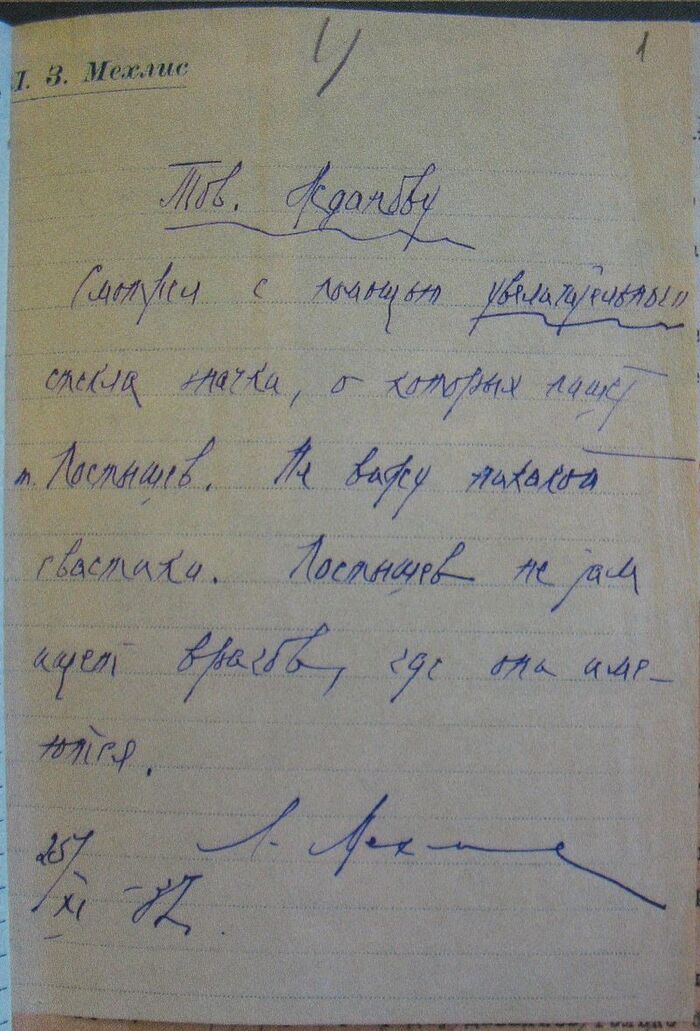 Л. З. Мехлис
1
Тов. Жданову
Смотрел с помощью увеличительного
стекла значки, о которых пишет
т. Постышев. Не вижу никакой
свастики. Постышев не там
ищет врагов, где они име-
ются.
25/
XI - 37.
Л. Мехлис